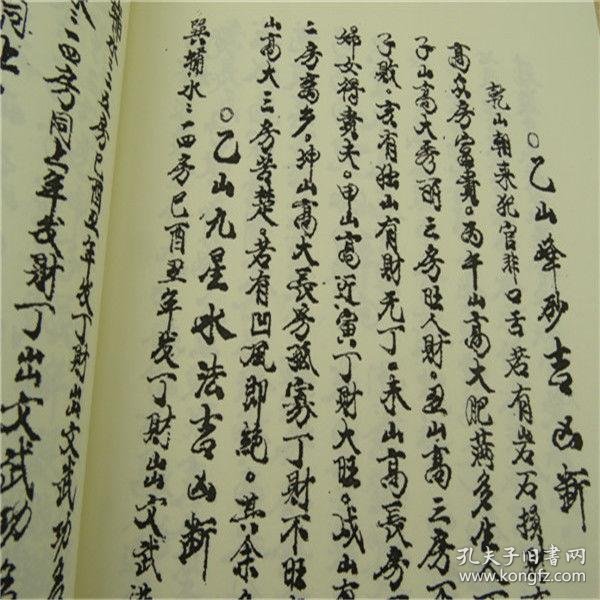 ○乙山峰砂吉凶断
乾山朝来犯官非口舌若有岩石損財
高众房富貴。丙午山高大肥满多生
子山高大秀丽三房旺人財。丑山高三房
子敗。亥有独山有財无丁。未山高長房
婦女得貴夫。甲山高近寅。丁財大旺。戌山有
二房离乡。坤山高大長房孤寡丁財不旺
山高大三房苦楚。若有凹風即絶。其余
○乙山九星水法吉凶断
巽輔水三一四房巳酉丑年发丁財出文武
三一四房巳酉丑年发丁財出文武功名
水三一四房同上年发財丁出文武功名
同上
孔夫子旧书网
www.kongfz.com